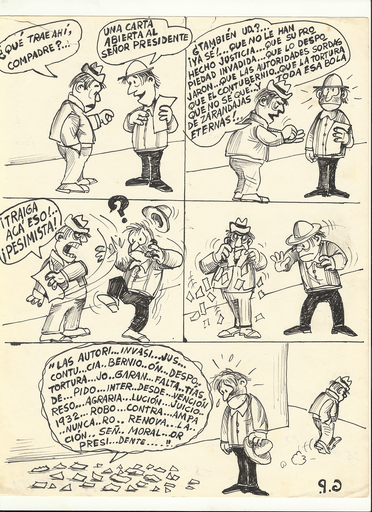 ¿QUÉ TRAE AHÍ,
COMPADRE?...
UNA CARTA
ABIERTA AL
SEÑOR PRESIDENTE
¿TAMBIÉN UD.?...
¡YA SÉ!...QUE NO LE HAN
HECHO JUSTICIA...QUE SU PRO
PIEDAD INVADIDA...QUE LO DESPO
JARON...QUE LAS AUTORIDADES SORDAS
QUE EL CONTUBERNIO...QUE LA TORTURA
QUE NO SE QUE...Y TODA ESA BOLA
DE ZARANDAJAS
ETERNAS!...
¡TRAIGA
ACÁ ESO!...
¡PESIMISTA!
?
"LAS AUTORI...INVASI...JUS...
CONTU...CIA..BERNIO..ÓN...DESPO..
TORTURA...JO..GARAN..FALTA..TÍAS.
DE...PIDO...INTER..DESDE..VENCIÓN
RESO...AGRARIA...LUCIÓN..JUICIO-
1932...ROBO...CONTRA...AMPA
..NUNCA..RO.. RENOVA...LA-
CIÓN.. SEÑ.. MORAL..OR
PRESI...DENTE...."
G.P.